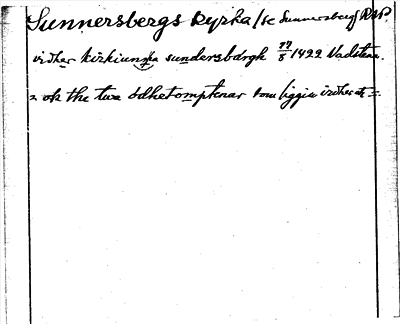 Sunnersbergs kyrka / se Sunnersberg RAP
widher kirkiunne sundersbärgh 27/8 1422 Vadstena.
2 ok the twa ödhetompternar som liggia widher